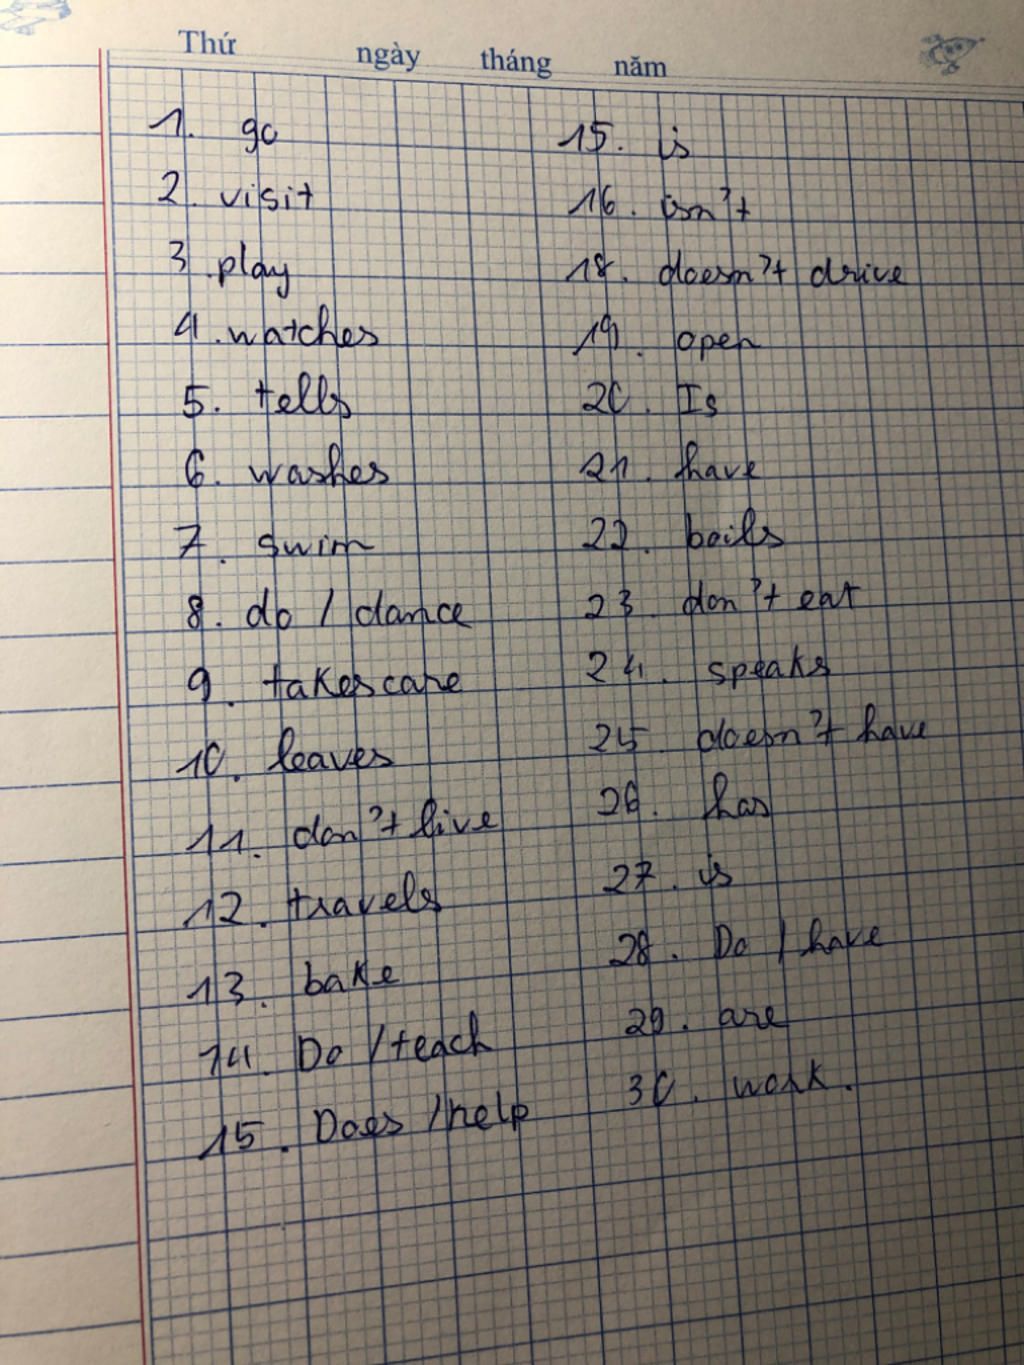 Thứ ngày tháng năm
1. go
2. visit
3. play
4. watches
5. tells
6. washes
7. swim
8. do / dance
9. takes care
10. leaves
11. don't live
12. travels
13. bake
14. Do / teach
15. Does / help
15. is
16. isn't
18. doesn't drive
19. open
20. Is
21. have
22. boils
23. don't eat
24. speaks
25. doesn't have
26. has
27. is
28. Do / have
29. are
30. work.